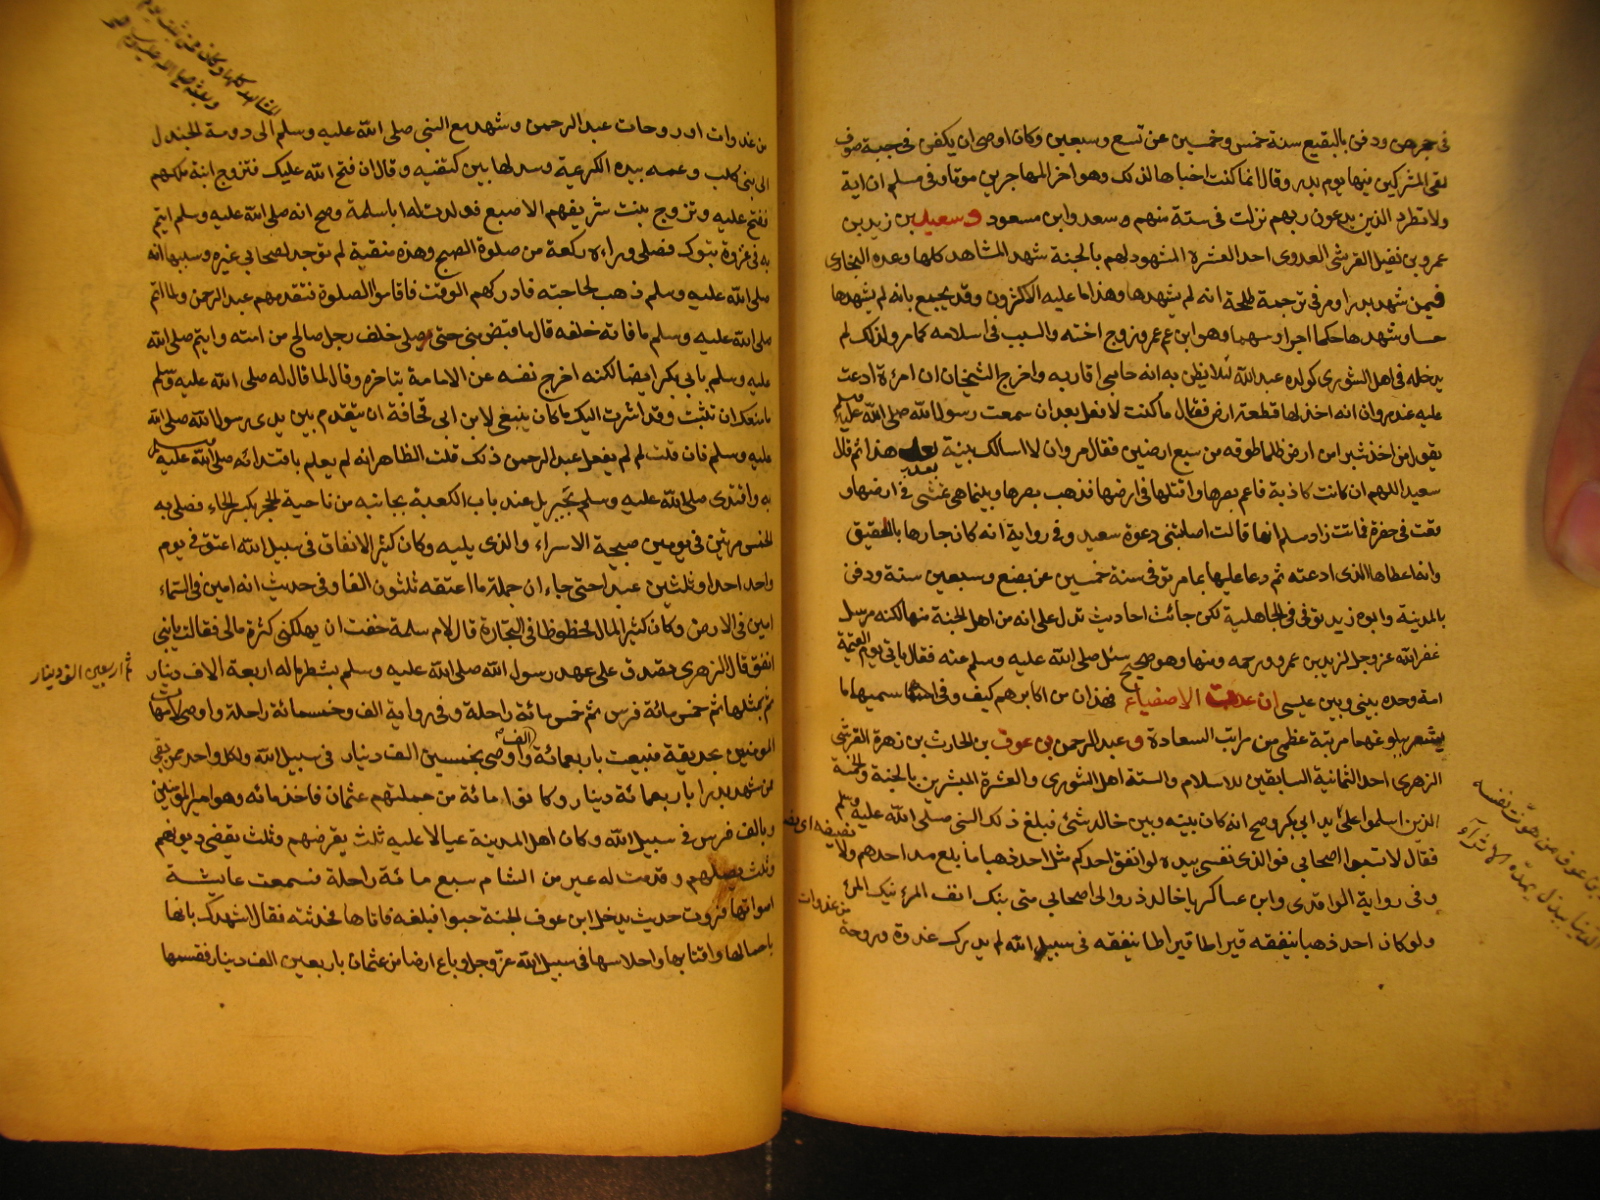 في حجرهن ودفن بالبقيع سنة خمس وخمسين عن تسع وسبعين وكان اوصى ان يكفن في جبة صوف
لقى المشركين فيها يوم بدر وقال انما كنت اخباها لذلك وهو اخر المهاجرين موتا وفي مسلم ان اية
ولا تطرد الذين يدعون ربهم نزلت في ستة منهم وسعد وابن مسعود وسعيد بن زيد بن
عمرو بن نفيل القرشى العدوى احد العشرة المشهود لهم بالجنة شهد المشاهد كلها وعده البخارى
فيمن شهد بدرا ومر في ترجمة طلحة انه لم يشهدها وهذا ما عليه الاكثرون وقد يجمع بانه لم يشهدها
حسا وشهدها حكما اجرا وسهما وهو ابن عم عمر وزوج اخته والسبب في اسلامه كما مر ولذلك لم
يدخله في اهل الشورى كولده عبد الله لئلا يظن به انه حابى اقاربه واخرج الشيخان ان امرءة ادعت
عليه عند مروان انه اخذ لها قطعة ارض فقال ما كنت لافعل بعد ان سمعت رسول الله صلى الله عليه وسلم
يقول من اخذ شبرا من ارض ظلما طوقه من سبع ارضين فقال مروان لا اسالك بينة بعد هذا ثم قال
سعيد اللهم ان كانت كاذبة فاعم بصرها واقتلها في ارضها فذهب بصرها وبينما هي تمشى في ارضها و
قعت في حفرة فماتت زاد مسلم انها قالت اصابتنى دعوة سعيد وفي رواية انه كان جارها بالعقيق
وانه اعطاها الذى ادعته ثم دعا عليها بما مر توفى سنة خمسين عن بضع وسبعين سنة ودفن
بالمدينة وابوه زيد توفى في الجاهلية لكن جائت احاديث تدل على انه من اهل الجنة منها لكنه مرسل
غفر الله عز وجل لزيد بن عمرو ورحمه ومنها وهو صحيح سئل صلى الله عليه وسلم عنه فقال ياتى يوم القيمة
امة وحده بينى وبين عيسى ان عدت الاصفياء فهذان من اكابرهم كيف وفي سميهما ما
يشعر ببلوغهما مرتبة عظمى من مراتب السعادة وعبد الرحمن بن عوف بن الحارث بن زهرة القرشى
الزهرى احد الثمانية السابقين للاسلام والستة اهل الشورى والعشرة المبشرين بالجنة والخمسة
الذين اسلموا على يد ابى بكر وصح انه كان بينه وبين خالد شئ فبلغ ذلك النبى صلى الله عليه وسلم
فقال لا تسبوا اصحابى فو الذى نفسى بيده لو انفق احدكم مثل احد ذهبا ما بلغ مد احدهم ولا نصيفه
وفي رواية الواقدى وابن عساكر يا خالد ذروا لى اصحابى متى ينك انف المرء ينك المرء
ولو كان احد ذهبا ينفقه قيراطا قيراطا ينفقه في سبيل الله لم يدرك غدوة وروحة
من غدوات
من غدوات او روحات عبد الرحمن وشهد مع النبى صلى الله عليه وسلم الى دومة الجندل
الى بنى كلب وعممه بيده الكريمة وسدلها بين كتفيه وقال ان فتح الله عليك فتزوج ابنة ملكهم
ففتح عليه وتزوج بنت شريفهم الاصبغ فولدت له ابا سلمة وصح انه صلى الله عليه وسلم ايتم
به في غزوة تبوك فصلى وراءه ركعة من صلوة الصبح وهذه منقبة لم توجد لصحابى غيره وسببها انه
صلى الله عليه وسلم ذهب لحاجته فادركهم الوقت فاقاموا الصلوة فتقدمهم عبد الرحمن ولما اتم
صلى الله عليه وسلم ما فاته خلفه قال ما قبض نبى حتى يصلى خلف رجل صالح من امته وايتم صلى الله
عليه وسلم بابى بكر ايضا لكنه اخرج نفسه عن الامامة بتاخره وقال لما قال له صلى الله عليه وسلم
ما منعك ان تلبث وقد اشرت اليك ما كان ينبغى لابن ابى قحافة ان يتقدم بين يدى رسول الله صلى الله
عليه وسلم فان قلت لم لم يفعل عبد الرحمن ذلك قلت الظاهر انه لم يعلم باقتدائه صلى الله عليه وسلم
به واقتدى صلى الله عليه وسلم بجبريل عند باب الكعبة بجانبه من ناحية الحجر بكسر الحاء فصلى به
الخمس مرتين في يومين صبيحة الاسراء والذى يليه وكان كثير الانفاق في سبيل الله اعتق في يوم
واحد احدا وثلثين عبدا حتى جاء ان جملة ما اعتقه ثلثون الفا وفي حديث انه امين في السماء
امين في الارض وكان كثير المال محظوظا في التجارة قال لام سلمة خفت ان يهلكنى كثرة مالى فقالت يابنى
انفق قال الزهرى تصدق على عهد رسول الله صلى الله عليه وسلم بشطر ماله اربعة الاف دينار
ثم اربعين الف دينار
ثم بمثلها ثم خمس مائة فرس ثم خمس مائة راحلة وفي رواية الف وخمسمائة راحلة واوصى لامهات
المومنين بحديقة فبيعت باربعمائة الف واوصى بخمسين الف دينار في سبيل الله ولكل واحد ممن بقى
ممن شهد بدرا باربعمائة دينار وكانوا مائة من جملتهم عثمان فاخذ مائه وهو امير المؤمنين
وبالف فرس في سبيل الله وكان اهل المدينة عيالا عليه ثلث يقرضهم وثلث يقضى ديونهم
وثلث يصلهم وقدمت له عير من الشام سبع مائة راحلة فسمعت عايشة
اصواتها فروت حديث يدخل ابن عوف الجنة حبوا فبلغه فاتاها فحدثته فقال اشهدك بانها
باحمالها واقتابها واحلاسها في سبيل الله عز وجل وباع ارضا من عثمان باربعين الف دينار فقسمها